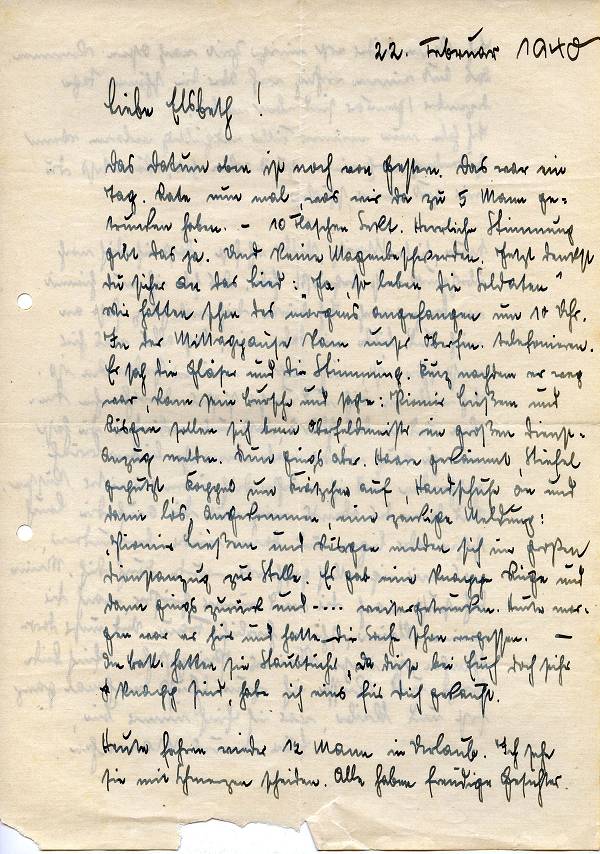 22. Februar 1940
Liebe Elsbeth!
Das Datum oben ist noch von gestern. Das war ein
Tag. Rate nun mal, was wir da zu 5 Mann ge-
trunken haben. – 10 Flaschen Sekt. Herrliche Stimmung
gibt das ja. Und keine Magenbeschwerden. Jetzt denkst
du sicher an das Lied: "Ja, so leben die Soldaten"
Wir hatten schon des morgens angefangen um 10 Uhr.
In der Mittagspause kam unser Oberfm. telefonieren.
Er sah die Gläser und die Stimmung. Kurz nachdem er weg
war, kam sein Bursche und sagte: "Pionier und
sollen sich beim Oberfeldmeister im großen Dienst-
anzug melden. Nun gings aber. Haare gekämmt, Stiefel
geputzt, Koppel und Krätzchen auf, Handschuhe an und
dann los. Angekommen, eine zackige Meldung:
"Pionier und melden sich im großen
Dienstanzug zur Stelle. Es gab eine knappe Rüge und
dann gings zurück und .... weitergetrunken. Heute mor-
gen war er hier und hatte die Sache schon vergessen. –
Im hatten sie Staubtücher, da diese bei Euch doch sehr
knapp sind, habe ich eins für Dich gekauft.
Heute fahren wieder 12 Mann in Urlaub. Ich sehe
sie mit Schmerzen scheiden. Alle haben freudige Gesichter.